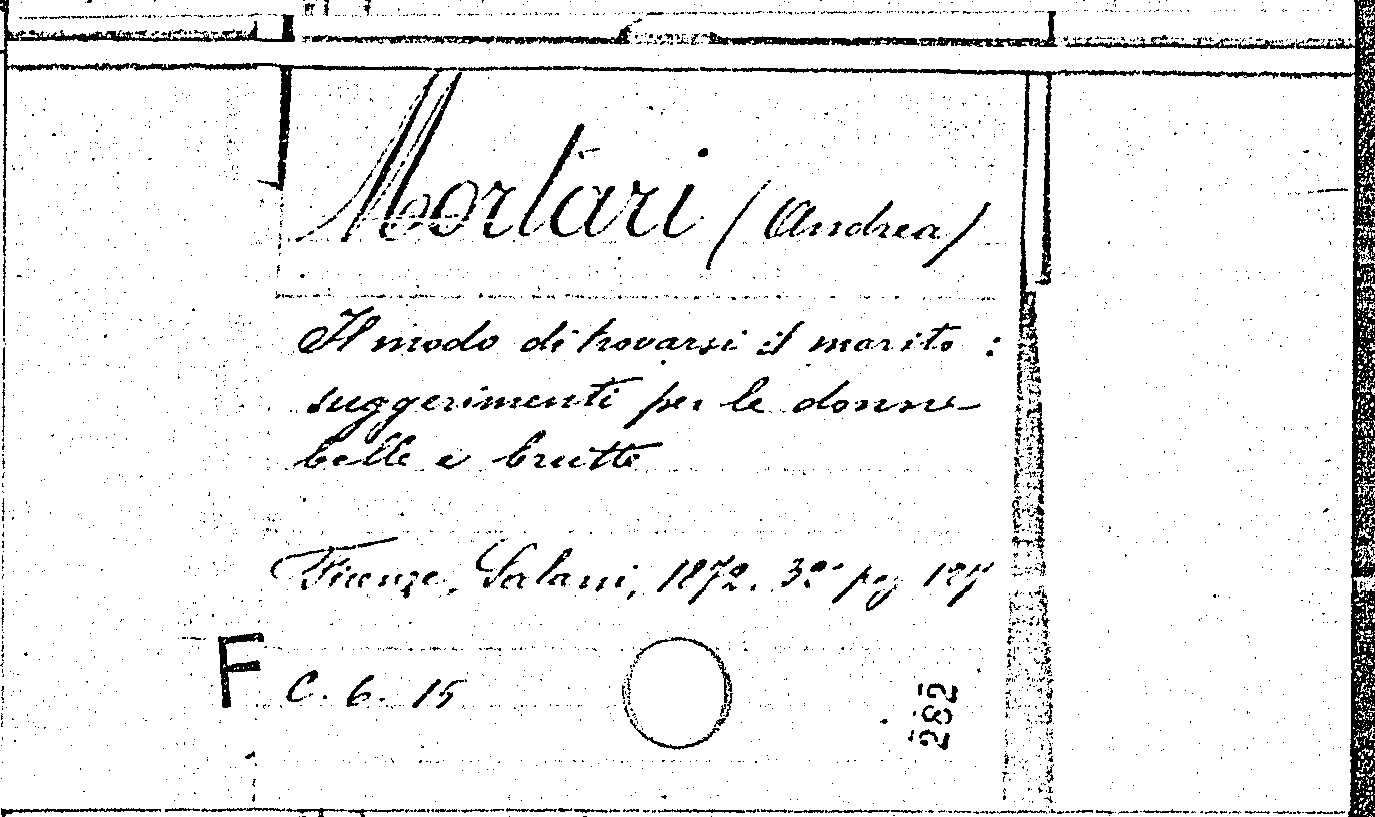 Mortari (Andrea)
Il modo di trovarsi il marito :
suggerimenti per le donne
belle e brutte
Firenze, Salani, 1872. 32° pag
F C. 6. 15
282